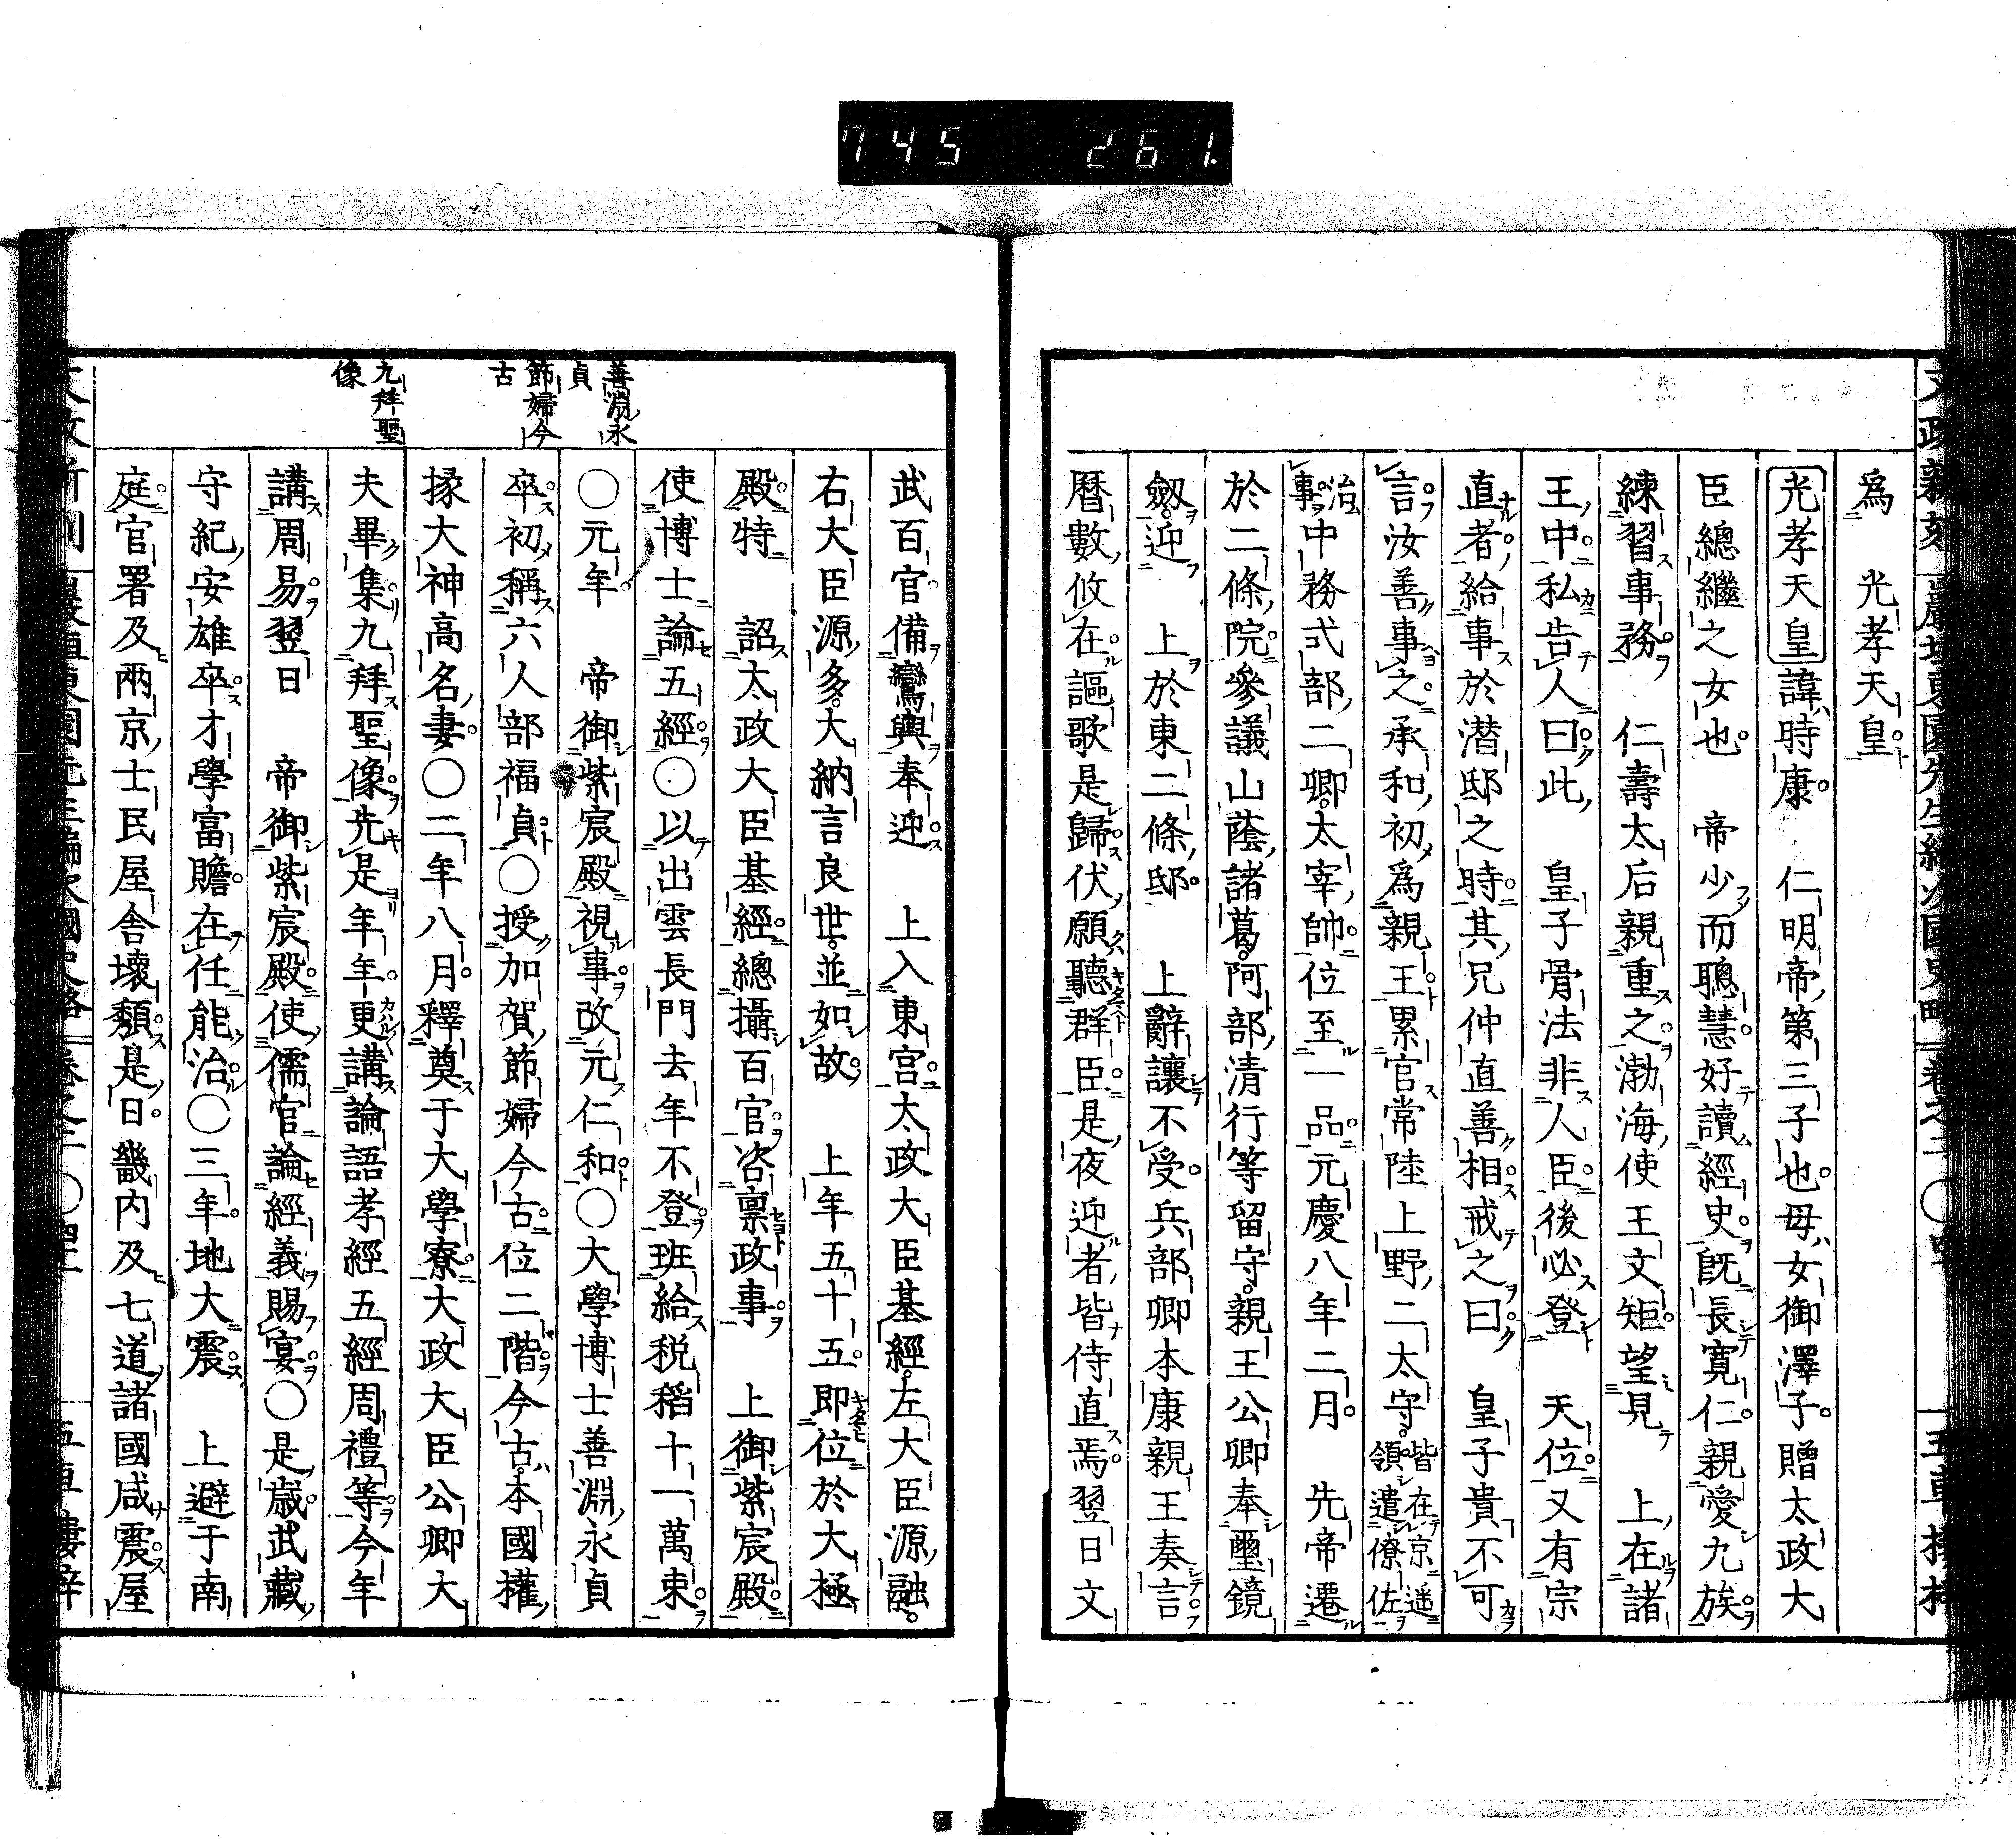 745 261.
爲 光孝天皇
光孝天皇諱時康 仁明帝第三子也母女御澤子贈太政大
臣總繼之女也 帝少而聰慧好讀經史既長寬仁親愛九族
練習事務 仁壽太后親重之渤海使王文矩望見 上在諸
王中私告人曰此 皇子骨法非人臣後必登 天位又有宗
直者給事於潜邸之時其兄仲直善相戒之曰 皇子貴不可
言汝善事之承和初爲親王累官常陸上野二太守皆在京遥領遣僚佐
治事中務式部二卿太宰帥位至一品元慶八年二月 先帝遷
於二條院參議山蔭諸葛阿部清行等留守親王公卿奉璽鏡
劔迎 上於東二條邸 上辭讓不受兵部卿本康親王奏言
曆數攸在謳歌是歸伏願聽群臣是夜迎者皆侍直焉翌日文
武百官備鸞輿奉迎 上入東宮太政大臣基經左大臣源融
右大臣源多大納言良世並如故 上年五十五即位於大極
殿特 詔太政大臣基經總攝百官咨禀政事 上御紫宸殿
使博士論五經○以出雲長門去年不登班給税稻十一萬束
○元年 帝御紫宸殿視事改元仁和○大學博士善淵永貞
卒初稱六人部福貞○授加賀節婦今古位二階今古本國權
掾大神高名妻○二年八月釋奠于大學寮大政大臣公卿大
夫畢集九拜聖像先是年年更講論語孝經五經周禮等今年
講周易翌日 帝御紫宸殿使儒官論經義賜宴○是歳武藏
守紀安雄卒才學富贍在任能治○三年地大震 上避于南
庭官署及兩京士民屋舎壞頽是日畿内及七道諸國咸震屋
善淵永貞
節婦今古
九拜聖像